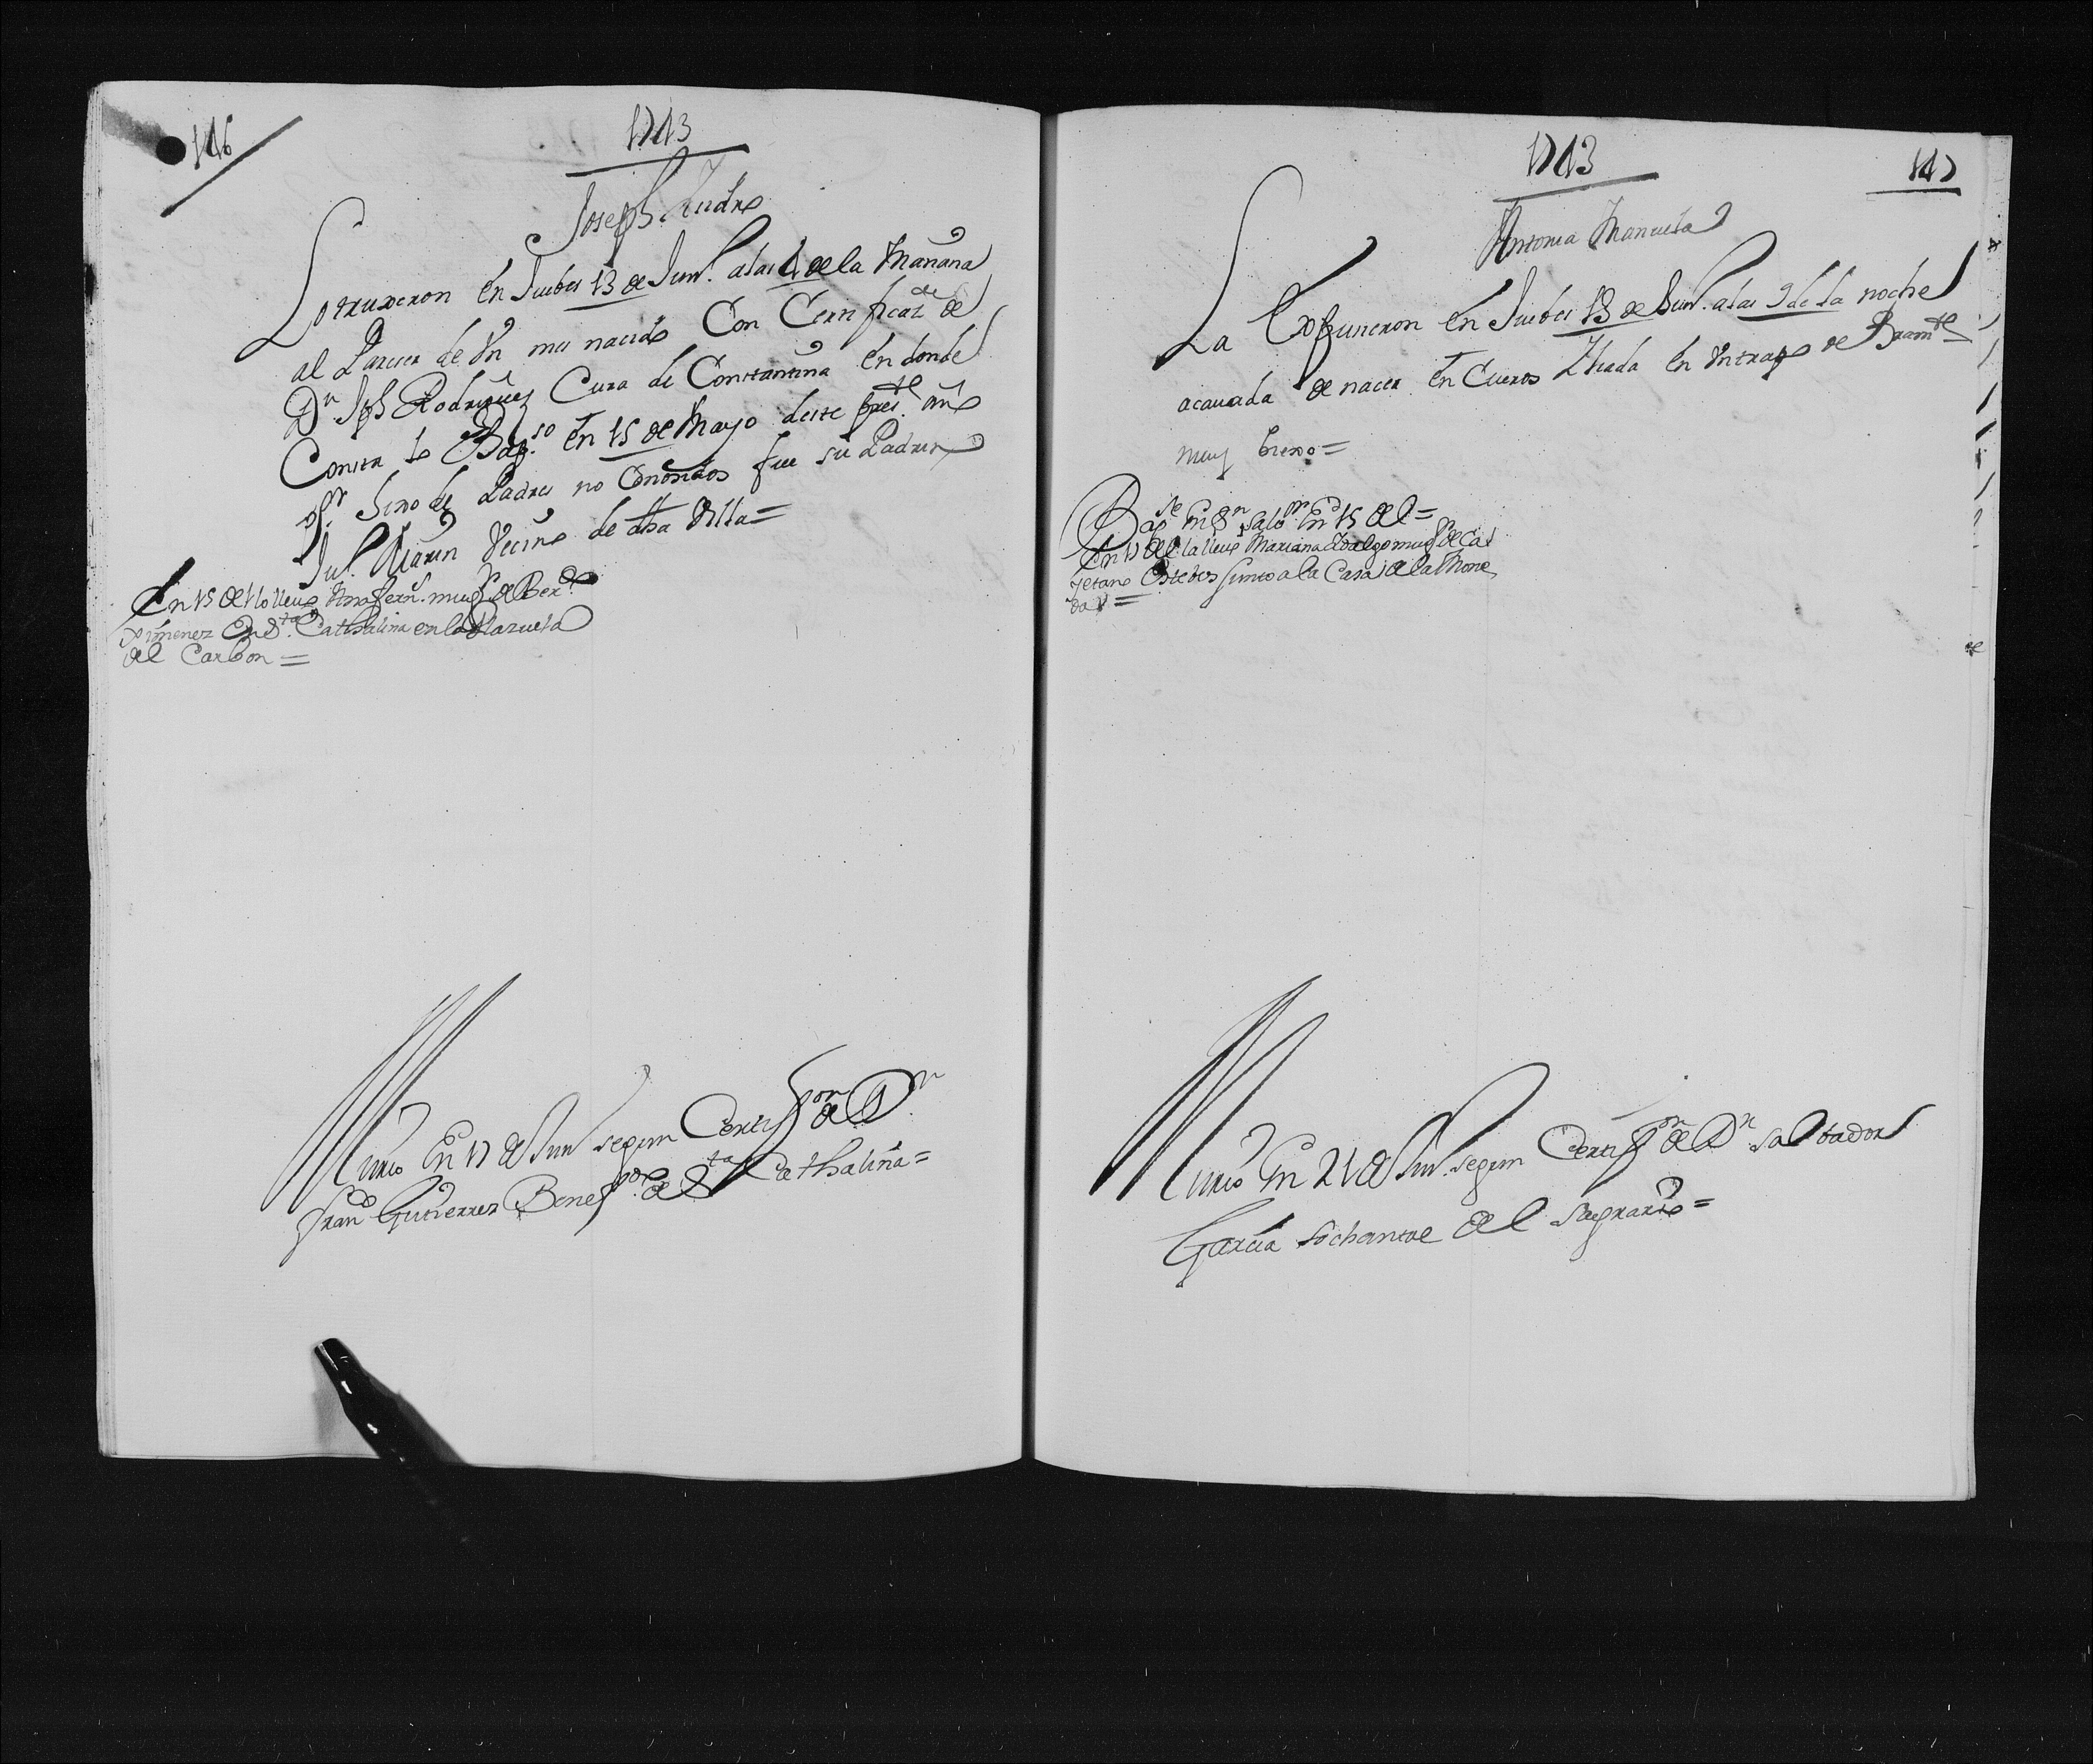 146
1743
Joseph Ysidro
Lo truxeron en Juebes 13 de Jun.º a las 4 de la Mañana
al Parecer de Un mes nacido Con Certificaz.on de
Dn Jph Rodriguez Cura de Constantina en donde
Consta lo Bap.so en 15 de Mayo deste pres.te año
p.r hixo de Padres no Conosidos fue su Padrino
Ju.º Marin Vecino de dha Villa =
En 15 de el lo llevo Ana fern.s mug.r de Ber.do
Ximenez En S.ta Cathalina en la Plazuela
del Carbon =
Murio En 17 de Jun segun Certif.on de Dn
Fran.co Gutierrez Benef.do de S.ta Cathalina =
1743
147
Antonia Manuela
La Expusieron en Juebes 13 de Jun.º a las 9 de la noche
acavada de nacer en Cueros Liada en Un trapo de Bram.te
muy biexo =
Bap.se En S.n Salb.or En 15 del =
En 17 del la llevo Mariana Hidalgo mug.r de Ca
yetano Estebes junto a la Casa de la Mone
da =
Murio En 21 de Jun.º segun Certif.on de Dn Salbador
Garcia Sochantre del Sagrario =